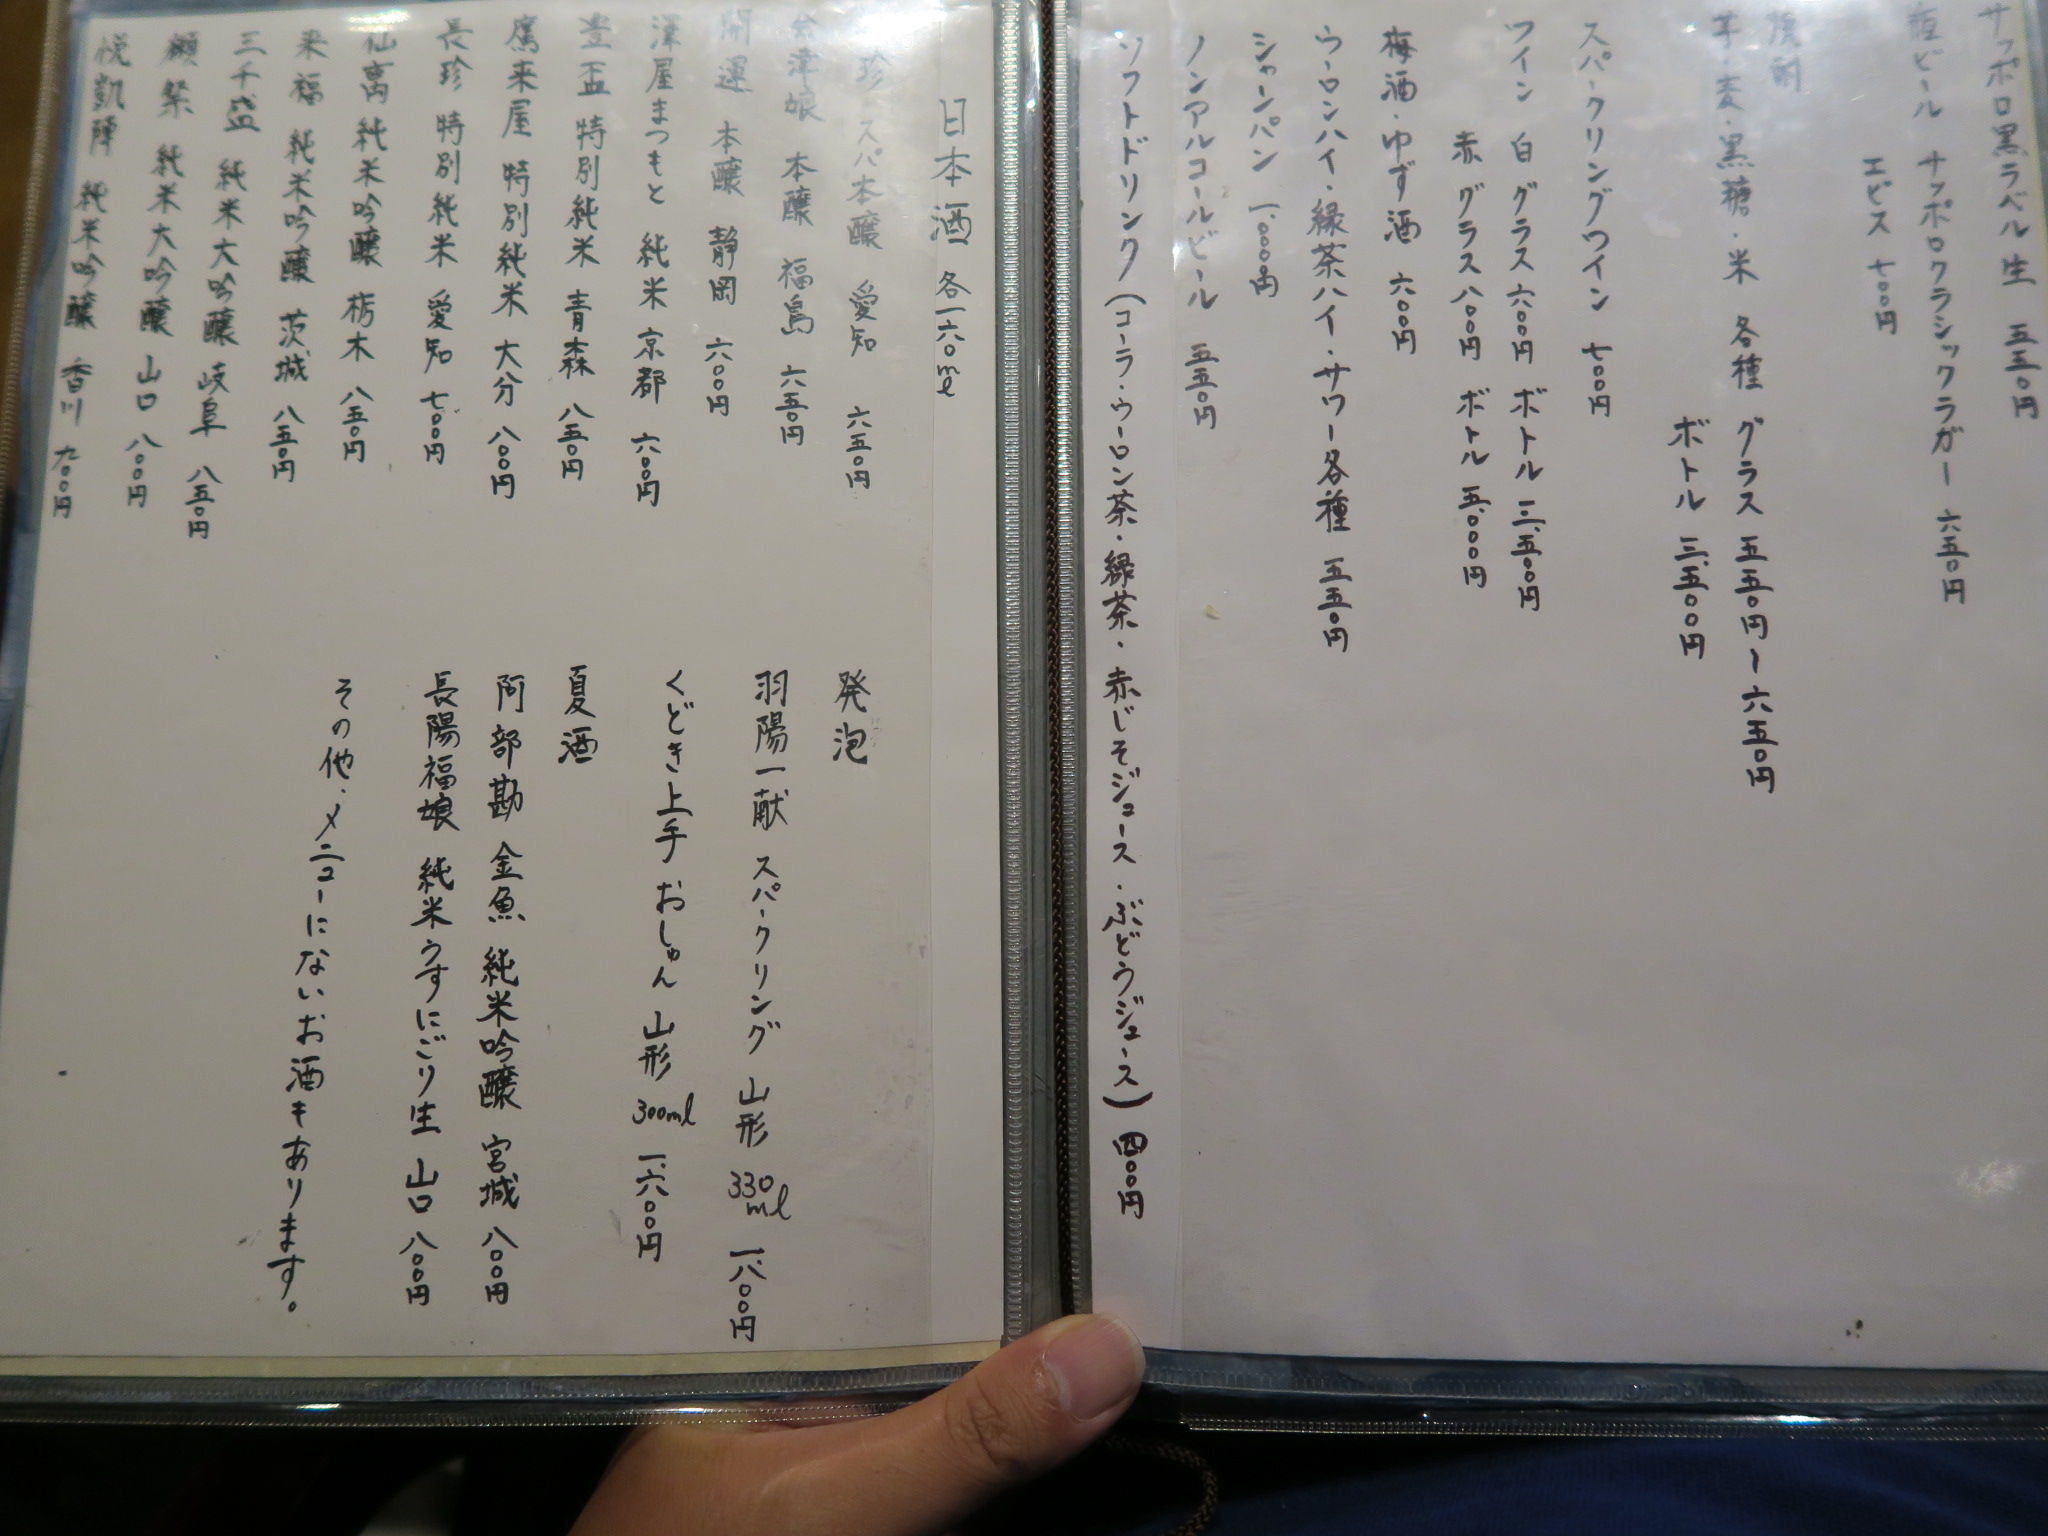 サッポロ黒ラベル生 五五〇円
瓶ビール サッポロクラシックラガー 六五〇円
エビス 七〇〇円
焼酎
芋・麦・黒糖・米 各種 グラス 五五〇円〜六五〇円
ボトル 三、五〇〇円
スパークリングワイン 七〇〇円
ワイン 白 グラス 六〇〇円 ボトル 三、五〇〇円
赤 グラス 八〇〇円 ボトル 五、〇〇〇円
梅酒・ゆず酒 六〇〇円
ウーロンハイ・緑茶ハイ・サワー各種 五五〇円
シャーンパン 一、〇〇〇円
ノンアルコールビール 五五〇円
ソフトドリンク(コーラ・ウーロン茶・緑茶・赤じそジュース・ぶどうジュース) 四〇〇円
日本酒 各一六〇ml
珍 スパ本醸 愛知 六五〇円
会津娘 本醸 福島 六五〇円
開運 本醸 静岡 六〇〇円
澤屋まつもと 純米 京都 六〇〇円
豊盃 特別純米 青森 八五〇円
鷹来屋 特別純米 大分 八〇〇円
長珍 特別純米 愛知 七〇〇円
仙禽 純米吟醸 栃木 八五〇円
来福 純米吟醸 茨城 八五〇円
三千盛 純米大吟醸 岐阜 八五〇円
獺祭 純米大吟醸 山口 八〇〇円
悦凱陣 純米吟醸 香川 九〇〇円
発泡
羽陽一献 スパークリング 山形 330ml 一、八〇〇円
くどき上手 おしゅん 山形 300ml 一、六〇〇円
夏酒
阿部勘 金魚 純米吟醸 宮城 八〇〇円
長陽福娘 純米うすにごり生 山口 八〇〇円
その他、メニューにないお酒もあります。